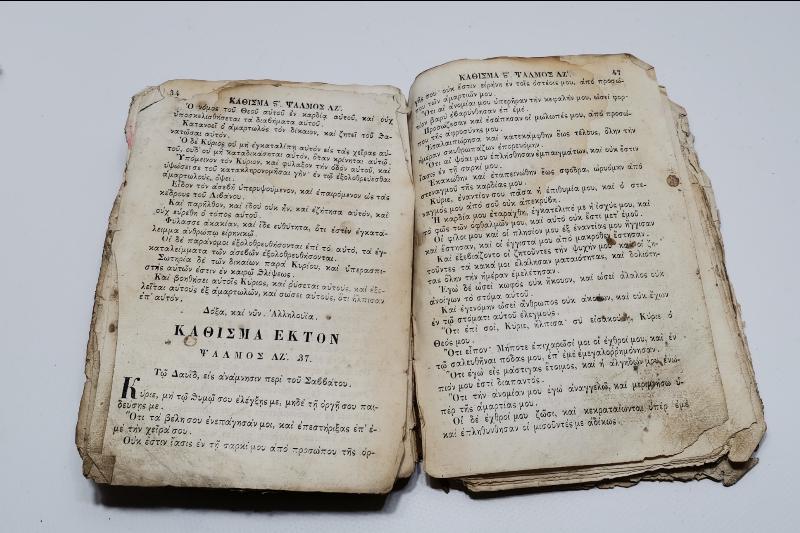 34
ΚΑΘΙΣΜΑ ϛ΄. ΨΑΛΜΟΣ ΛΖ΄.
Ὁ νόμος τοῦ Θεοῦ αὐτοῦ ἐν καρδίᾳ αὐτοῦ, καὶ οὐχ
ὑποσκελισθήσεται τὰ διαβήματα αὐτοῦ.
Κατανοεῖ ὁ ἁμαρτωλὸς τὸν δίκαιον, καὶ ζητεῖ τοῦ θα-
νατῶσαι αὐτόν.
Ὁ δὲ Κύριος οὐ μὴ ἐγκαταλίπῃ αὐτὸν εἰς τὰς χεῖρας αὐ-
τοῦ, οὐδ' οὐ μὴ καταδικάσεται αὐτόν, ὅταν κρίνηται αὐτῷ.
Ὑπόμεινον τὸν Κύριον, καὶ φύλαξον τὴν ὁδὸν αὐτοῦ, καὶ
ὑψώσει σε τοῦ κατακληρονομῆσαι γῆν· ἐν τῷ ἐξολοθρεύεσθαι
ἁμαρτωλούς, ὄψει.
Εἶδον τὸν ἀσεβῆ ὑπερυψούμενον, καὶ ἐπαιρόμενον ὡς τὰς
κέδρους τοῦ Λιβάνου.
Καὶ παρῆλθον, καὶ ἰδοὺ οὐκ ἦν, καὶ ἐζήτησα αὐτόν, καὶ
οὐχ εὑρέθη ὁ τόπος αὐτοῦ.
Φύλασσε ἀκακίαν, καὶ ἴδε εὐθύτητα, ὅτι ἐστὶν ἐγκατά-
λειμμα ἀνθρώπῳ εἰρηνικῷ.
Οἱ δὲ παράνομοι ἐξολοθρευθήσονται ἐπὶ τὸ αὐτό, τὰ ἐγ-
καταλείμματα τῶν ἀσεβῶν ἐξολοθρευθήσονται.
Σωτηρία δὲ τῶν δικαίων παρὰ Κυρίου, καὶ ὑπερασπι-
στὴς αὐτῶν ἐστιν ἐν καιρῷ θλίψεως.
Καὶ βοηθήσει αὐτοῖς Κύριος, καὶ ῥύσεται αὐτούς, καὶ ἐξε-
λεῖται αὐτοὺς ἐξ ἁμαρτωλῶν, καὶ σώσει αὐτούς, ὅτι ἤλπισαν
ἐπ' αὐτόν.
Δόξα, καὶ νῦν. Ἀλληλούϊα.
ΚΑΘΙΣΜΑ ΕΚΤΟΝ
ΨΑΛΜΟΣ ΛΖ΄. 37.
Τῷ Δαυῒδ, εἰς ἀνάμνησιν περὶ τοῦ Σαββάτου.
Κύριε, μὴ τῷ θυμῷ σου ἐλέγξῃς με, μηδὲ τῇ ὀργῇ σου παι-
δεύσῃς με.
Ὅτι τὰ βέλη σου ἐνεπάγησάν μοι, καὶ ἐπεστήριξας ἐπ' ἐ-
μὲ τὴν χεῖρά σου.
Οὐκ ἔστιν ἴασις ἐν τῇ σαρκί μου ἀπὸ προσώπου τῆς ὀρ-
ΚΑΘΙΣΜΑ ϛ΄. ΨΑΛΜΟΣ ΛΖ΄. 47
γῆς σου· οὐκ ἔστιν εἰρήνη ἐν τοῖς ὀστέοις μου, ἀπὸ προσώ-
που τῶν ἁμαρτιῶν μου.
Ὅτι αἱ ἀνομίαι μου ὑπερῆραν τὴν κεφαλήν μου, ὡσεὶ φορ-
τίον βαρὺ ἐβαρύνθησαν ἐπ' ἐμέ.
Προσώζεσαν καὶ ἐσάπησαν οἱ μώλωπές μου, ἀπὸ προσώ-
που τῆς ἀφροσύνης μου.
Ἐταλαιπώρησα καὶ κατεκάμφθην ἕως τέλους, ὅλην τὴν
ἡμέραν σκυθρωπάζων ἐπορευόμην.
Ὅτι αἱ ψόαι μου ἐπλήσθησαν ἐμπαιγμάτων, καὶ οὐκ ἔστιν
ἴασις ἐν τῇ σαρκί μου.
Ἐκακώθην καὶ ἐταπεινώθην ἕως σφόδρα, ὠρυόμην ἀπὸ
στεναγμοῦ τῆς καρδίας μου.
Κύριε, ἐναντίον σου πᾶσα ἡ ἐπιθυμία μου, καὶ ὁ στε-
ναγμός μου ἀπὸ σοῦ οὐκ ἀπεκρύβη.
Ἡ καρδία μου ἐταράχθη, ἐγκατέλιπέ με ἡ ἰσχύς μου, καὶ
τὸ φῶς τῶν ὀφθαλμῶν μου, καὶ αὐτὸ οὐκ ἔστι μετ' ἐμοῦ.
Οἱ φίλοι μου καὶ οἱ πλησίον μου ἐξ ἐναντίας μου ἤγγισαν
καὶ ἔστησαν, καὶ οἱ ἔγγιστά μου ἀπὸ μακρόθεν ἔστησαν.
Καὶ ἐξεβιάζοντο οἱ ζητοῦντες τὴν ψυχήν μου, καὶ οἱ ζη-
τοῦντες τὰ κακά μοι ἐλάλησαν ματαιότητας, καὶ δολιότη-
τας ὅλην τὴν ἡμέραν ἐμελέτησαν.
Ἐγὼ δὲ ὡσεὶ κωφὸς οὐκ ἤκουον, καὶ ὡσεὶ ἄλαλος οὐκ
ἀνοίγων τὸ στόμα αὐτοῦ.
Καὶ ἐγενόμην ὡσεὶ ἄνθρωπος οὐκ ἀκούων, καὶ οὐκ ἔχων
ἐν τῷ στόματι αὐτοῦ ἐλεγμούς.
Ὅτι ἐπὶ σοί, Κύριε, ἤλπισα· σὺ εἰσακούσῃ, Κύριε ὁ
Θεός μου.
Ὅτι εἶπον· Μήποτε ἐπιχαρῶσί μοι οἱ ἐχθροί μου, καὶ ἐν
τῷ σαλευθῆναι πόδας μου, ἐπ' ἐμὲ ἐμεγαλορρημόνησαν.
Ὅτι ἐγὼ εἰς μάστιγας ἕτοιμος, καὶ ἡ ἀλγηδών μου ἐνώ-
πιόν μου ἐστὶ διαπαντός.
Ὅτι τὴν ἀνομίαν μου ἐγὼ ἀναγγελῶ, καὶ μεριμνήσω ὑ-
πὲρ τῆς ἁμαρτίας μου.
Οἱ δὲ ἐχθροί μου ζῶσι, καὶ κεκραταίωνται ὑπὲρ ἐμέ
καὶ ἐπληθύνθησαν οἱ μισοῦντές με ἀδίκως.